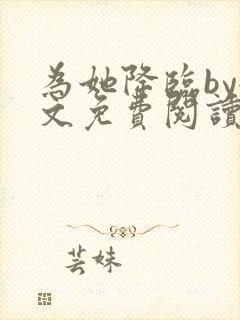 為她降臨by
文免費閱讀
芸妹